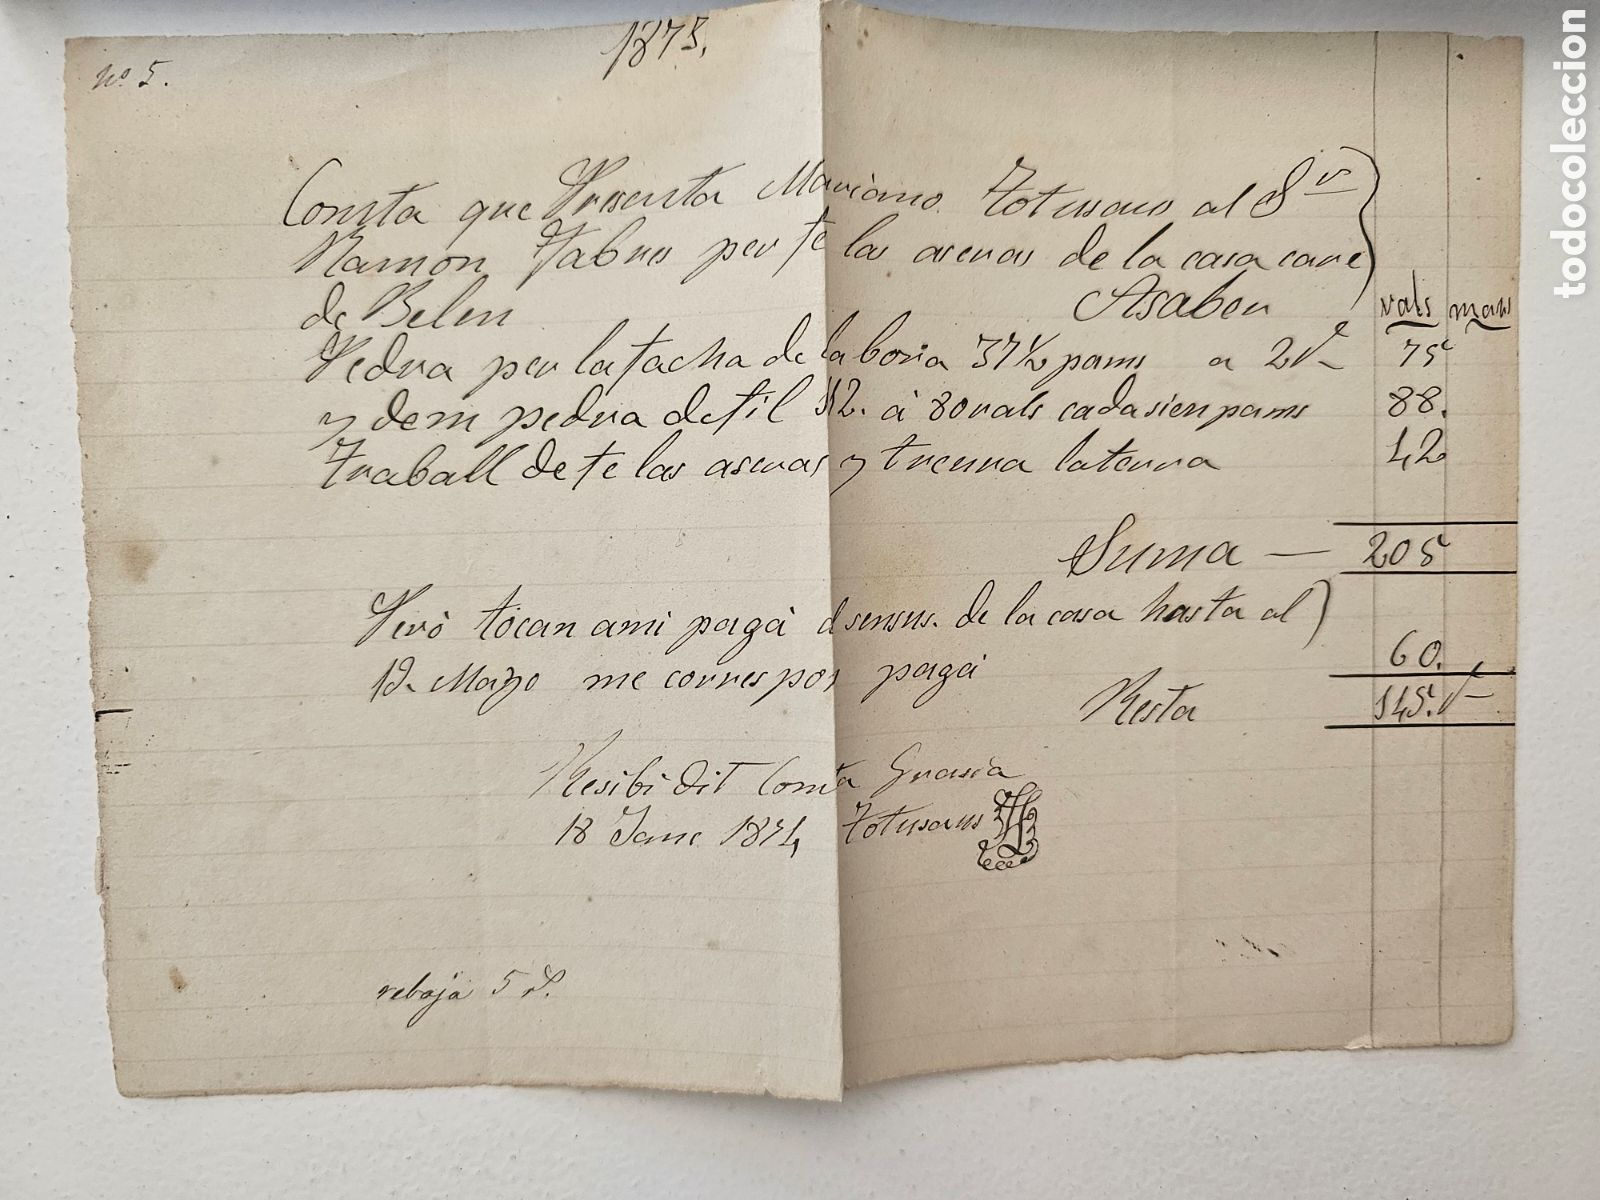 nº 5.
1875,
Comta que Presenta Mariano Totusaus al Sr
Ramon Fabres per fe las aseras de la casa care
de Belen
Asaber
rals mars
Pedra per la facha de la boria 37½ pams a 2 r 75
y dem pedra de fil 112. à 80 rals cada sien pams 88.
Traball de fe las aseras y treura la terra 42
Suma — 205
Però tocan ami pagà d sensus. de la casa hasta al
19. Mayo me correspon pagà 60.
Resta 145. r
Resibi dit Comta Grasia
18 Jane 1874 Totusaus
rebaja 5 d.
todocoleccion